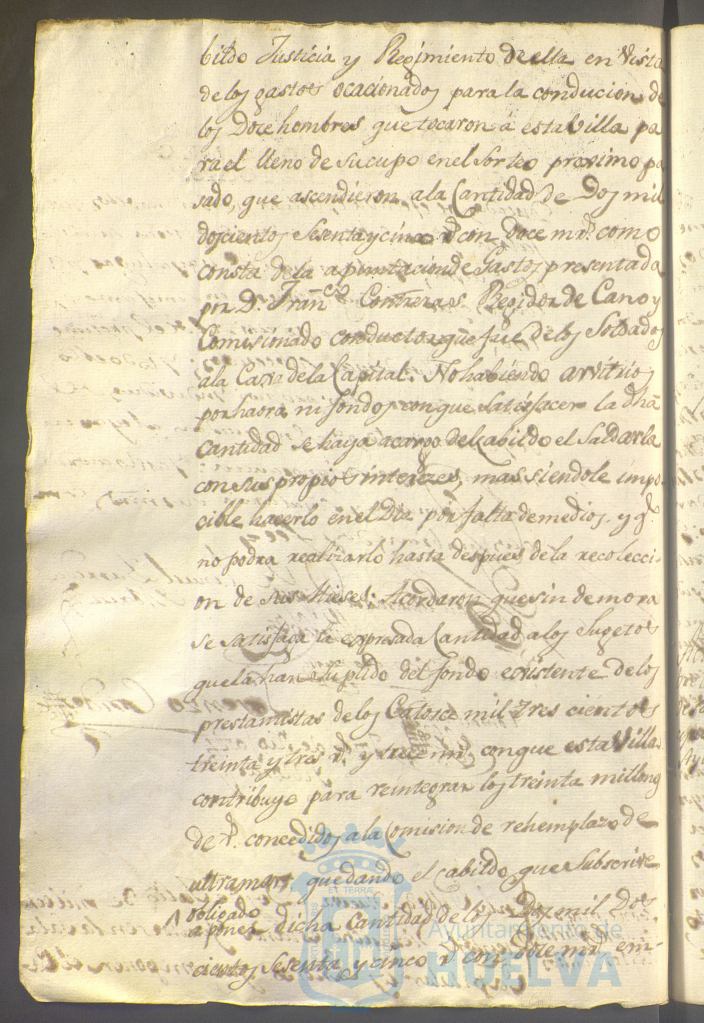 bildo Justicia y Regimiento de ella en Vista
de los gastos ocacionados para la conducion de
los Doce hombres que tocaron a esta Villa pa
ra el lleno de su cupo en el Sorteo proximo pa
sado, que ascendieron a la Cantidad de Dos mil
doscientos Sesenta y cinco rs. con doce mrs. como
consta de la apuntacion de Gastos presentada
por Dn. Franco. Contreras Regidor de Cano y
Comisionado conductor que fue de los Soldados
a la Caxa de la Capital. No habiendo arvitrios
por haora ni fondos con que satisfacer la dha
Cantidad se haya acargo del cavildo el Saldarla
con sus propios interezes, mas siendole impo
cible hacerlo en el Dia por falta de medios, y q.
no podra realizarlo hasta despues de la recolecci-
on de sus Mieses: Acordaron que sin demora
se satisfaga la expresada Cantidad a los Sugetos
que la han suplido del fondo existente de los
prestamistas de los Catorce mil tres cientos
treinta y tres rs. y trece mrs. con que esta Villa
contribuyo para reintegrar los treinta millones
de rs. concedidos a la Comision de rehemplazo de
ultramar, quedando el cabildo que Subscrive
obligado
a poner dicha Cantidad de los Dos mil Dos-
cientos Sesenta y cinco rs. con doce mrs. en
Ayuntamiento de
HUELVA